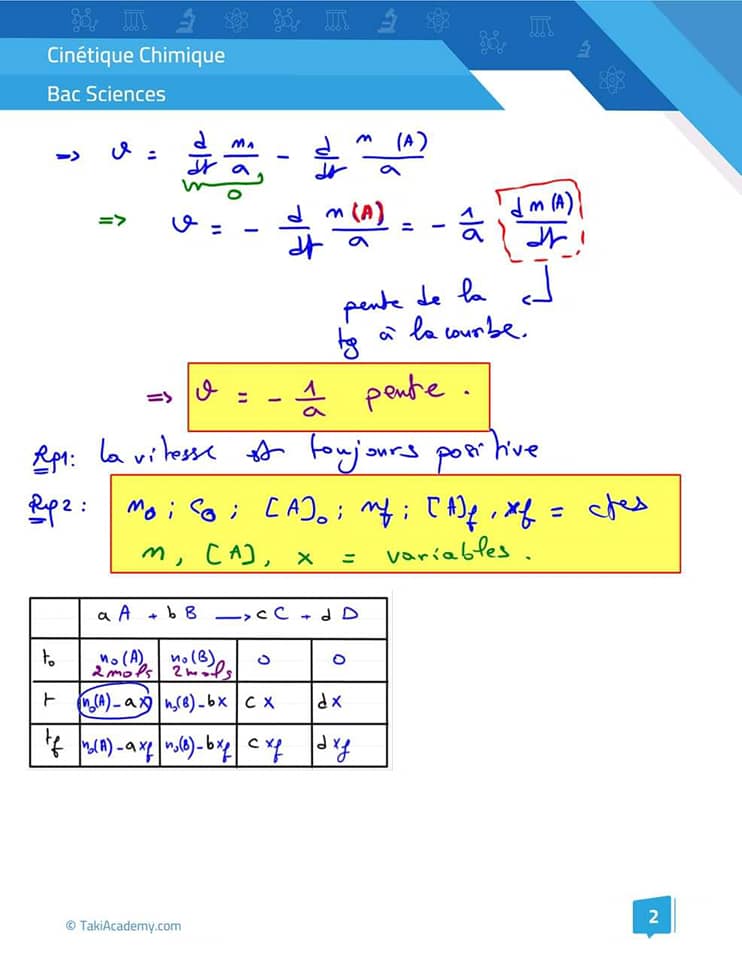 Cinétique Chimique
Bac Sciences
=> v = d/dt n₁/a - d/dt n(A)/a
0
=> v = - d/dt n(A)/a = - 1/a dn(A)/dt
pente de la
tg à la courbe.
=> v = - 1/a pente.
Rq1: la vitesse est toujours positive
Rq2: n₀ ; C₀ ; [A]₀ ; nf ; [A]f , xf = ctes
n, [A], x = variables.
aA + bB → cC + dD
t₀ n₀(A) n₀(B) 0 0
2mols 2mols
t n₀(A)-ax n₀(B)-bx cx dx
tf n₀(A)-axf n₀(B)-bxf cxf dxf
© TakiAcademy.com
2